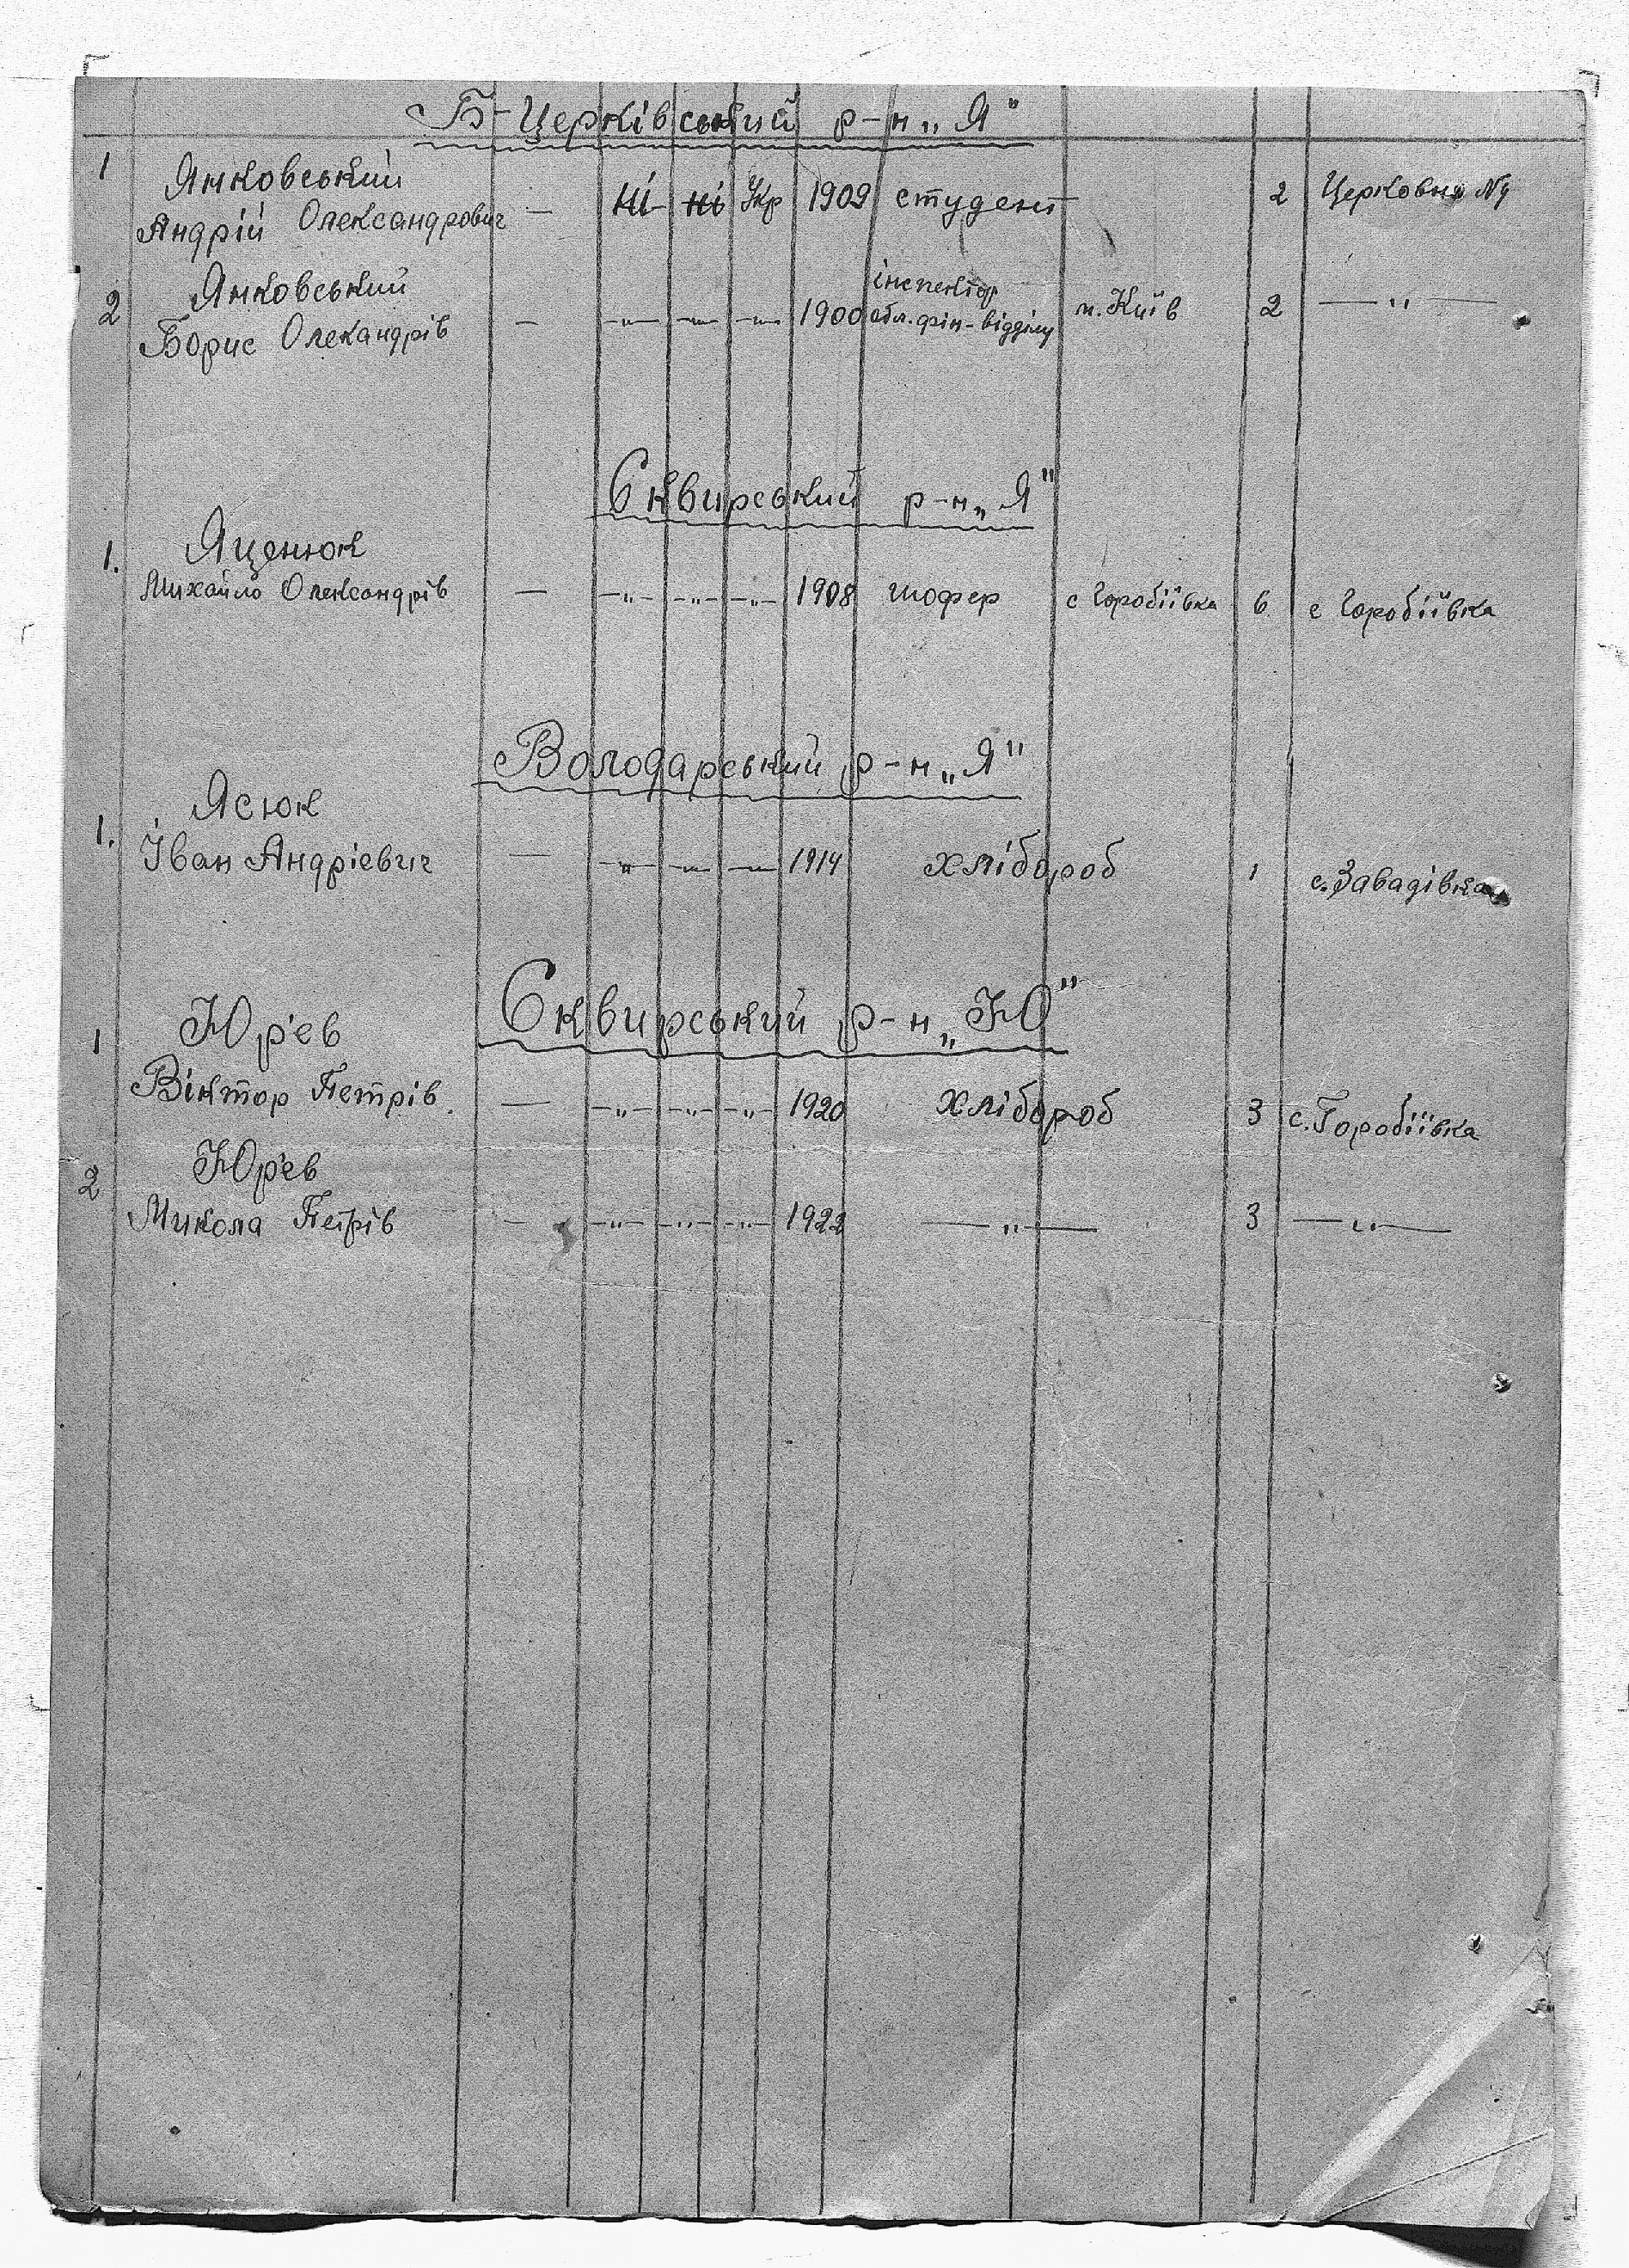 Б-Церківський р-н „Я"
1 Янковський
Андрій Олександрович — ні ні Укр 1909 студент 2 Церковна №4
2 Янковський
Борис Олекандрів — —„— —„— —„— 1900 інспектор обл. фін-відділу м. Київ 2 —„—
Сквирський р-н „Я"
1. Яценюк
Михайло Олександрів — —„— —„— —„— 1908 шофер с Горобіївка 6 с Горобіївка
Володарський р-н „Я"
1. Ясюк
Іван Андрієвич — —„— —„— —„— 1914 хлібороб 1 с. Завадівка
Сквирський р-н „Ю"
1 Юр'єв
Віктор Петрів. — —„— —„— —„— 1920 хлібороб 3 с. Горобіївка
2 Юр'єв
Микола Петрів — —„— —„— —„— 1922 —„— 3 —„—